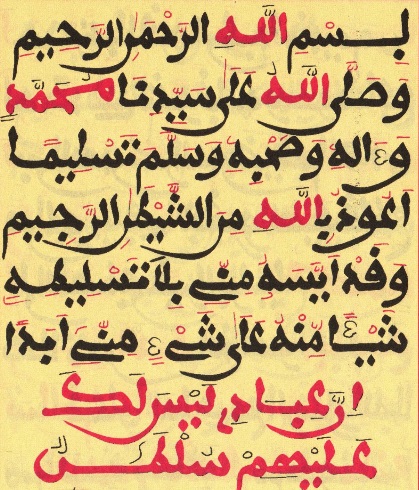 بِسْمِ اللَّهِ الرَّحْمٰنِ الرَّحِيمِ
وَصَلَّى اللَّهُ عَلَى سَيِّدِنَا مُحَمَّدٍ
وَءَالِهِ وَصَحْبِهِ وَسَلَّمَ تَسْلِيمًا
أَعُوذُ بِاللَّهِ مِنَ الشَّيْطٰنِ الرَّجِيمِ
وَقَدَ ايَسَهُ مِنِّي بِلَا تَسْلِيطِهِ
شَيْئًا مِّنْهُ عَلَى شَيْءٍ مِنِّي أَبَدًا
إِنَّ عِبَادِي لَيْسَ لَكَ
عَلَيْهِمْ سُلْطٰنٌ